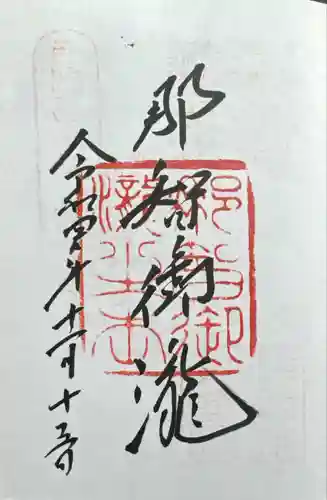 那智御瀧
令和四年十一月十五日
那智御
瀧之